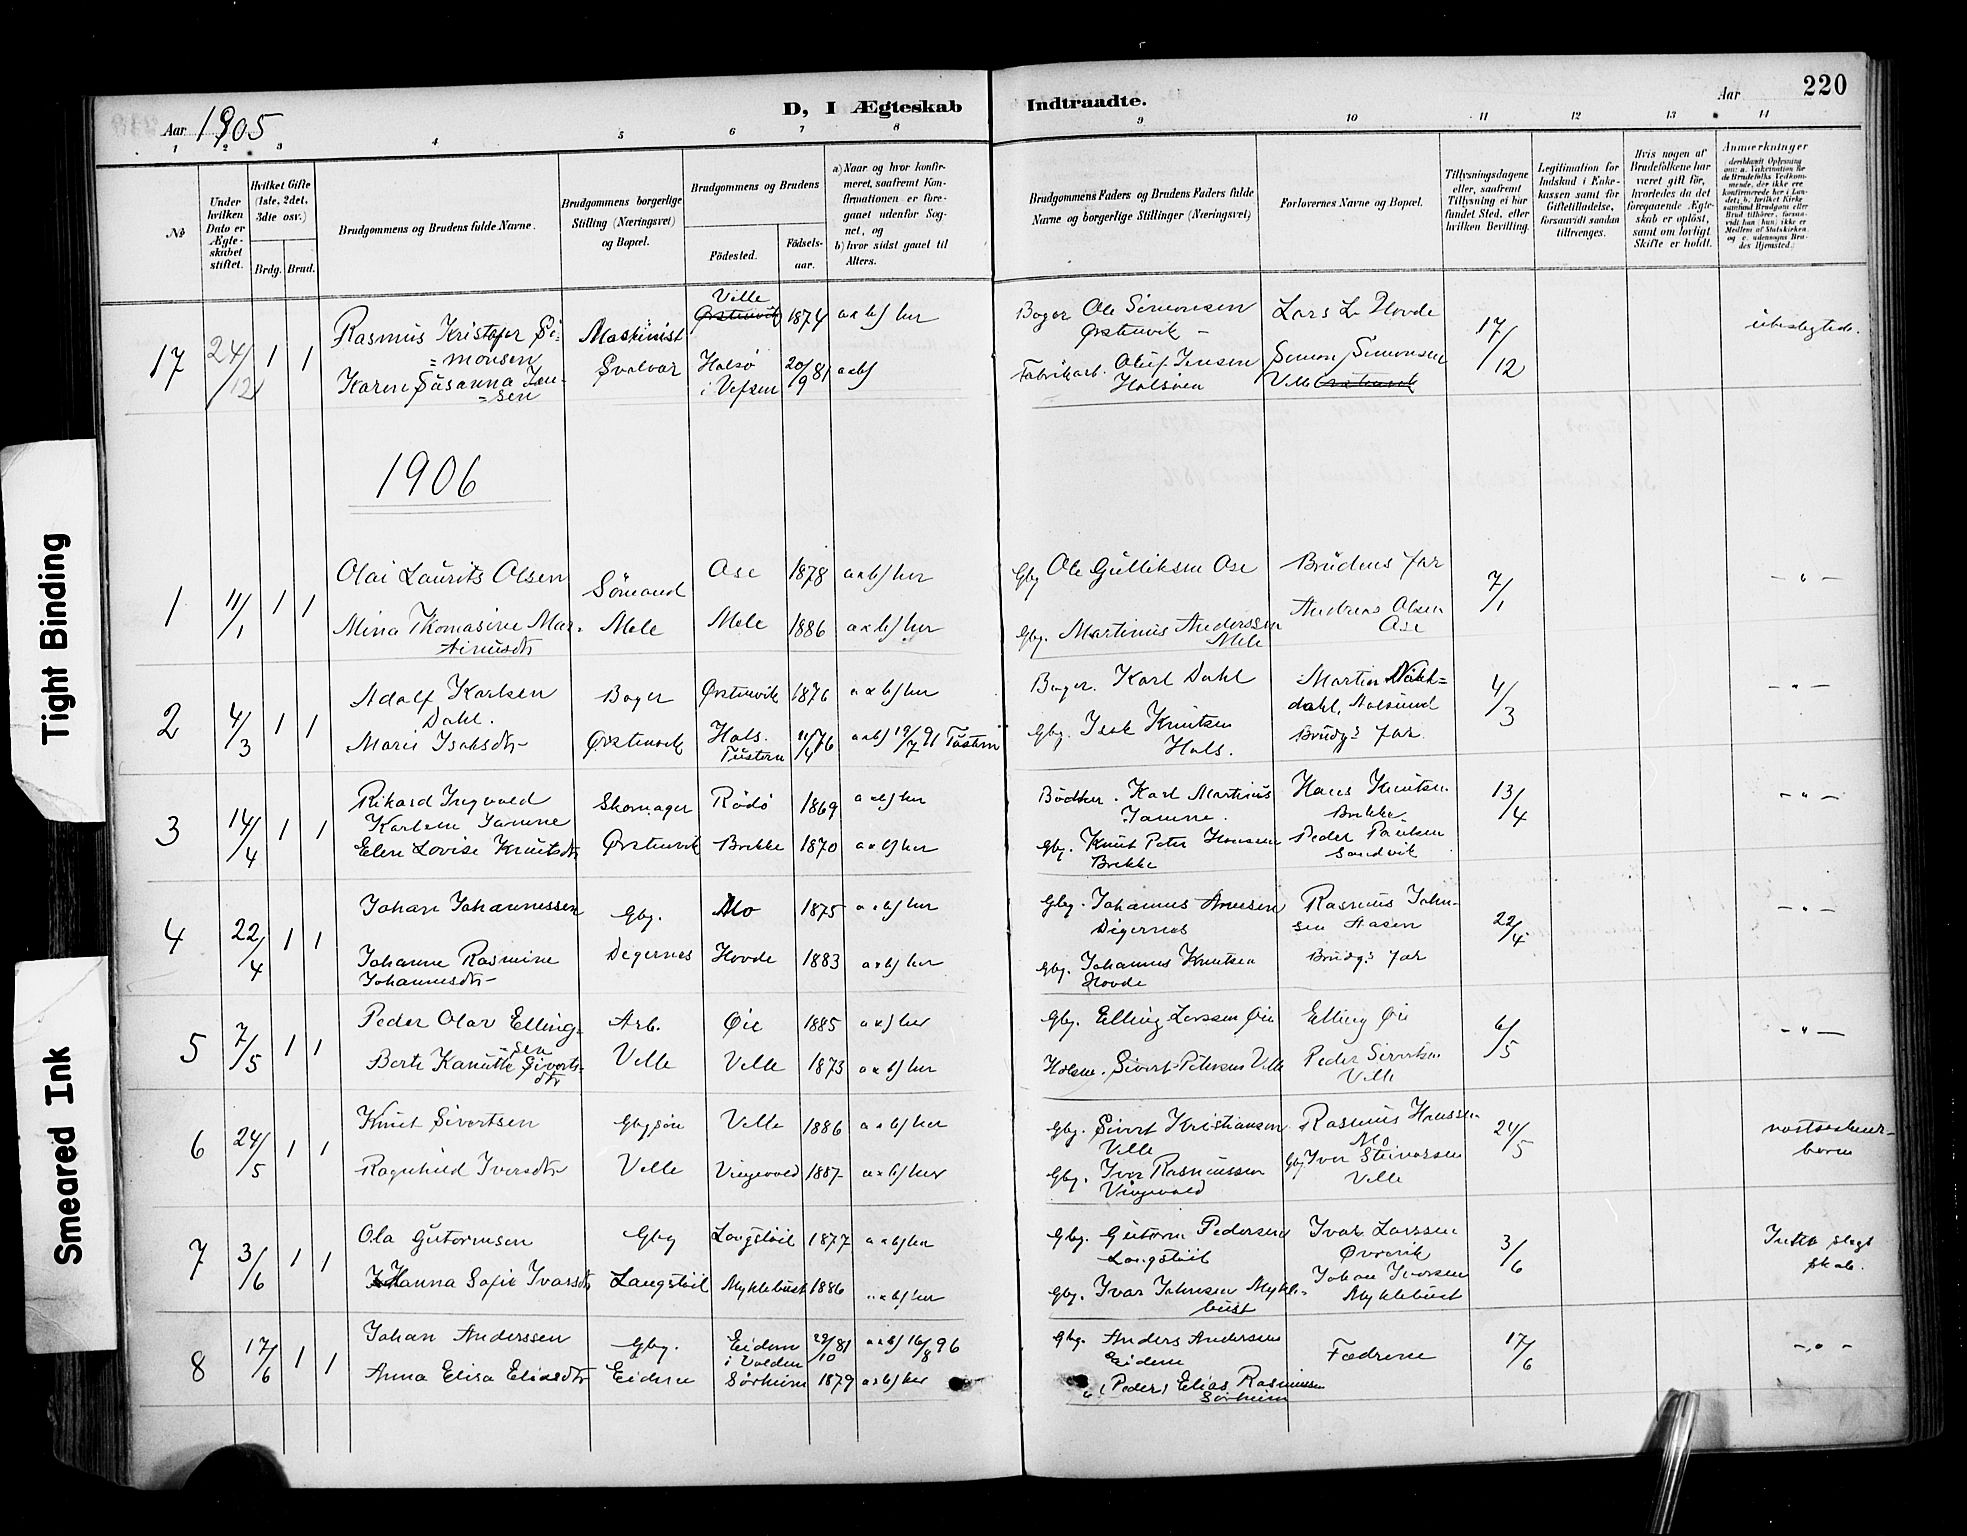 220
Aar 1905
D, I Ægteskab Indtraadte.
Aar
1 2 3 4 5 6 7 8 9 10 11 12 13 14
No
Under hvilken Dato er Ægteskabet stiftet.
Hvilket Gifte (1ste, 2det, 3die osv.)
Brdg. Brud.
Brudgommens og Brudens fulde Navne.
Brudgommens borgerlige Stilling (Næringsvei) og Bopæl.
Brudgommens og Brudens
Fødested.
Fødselsaar.
a) Naar og hvor konfirmeret, saafremt Konfirmationen er foregaaet udenfor Sognet, og
b) hvor sidst gaaet til Alters.
Brudgommens Faders og Brudens Faders fulde Navne og borgerlige Stillinger (Næringsvei)
Forlovernes Navne og Bopæl.
Tillysningsdagene eller, saafremt Tillysning ei har fundet Sted, efter hvilken Bevilling.
Legitimation for Indskud i Enkekassen samt for Giftetilladelse, forsaavidt saadan tiltrænges.
Hvis nogen af Brudefolkene har været gift før, hvorledes da det foregaaende Ægteskab er opløst, samt om lovligt Skifte er holdt.
Anmerkninger
17 24/12 1 1
Rasmus Kristofer Simonsen Maskinist Velle Ørstenvik 1874 a & b) her
Karen Susanna Jensen Svolvær Halsø i Vefsen 20/9 81 a & b)
Bager Ole Simonsen Ørstenvik Lars L. Hovde 17/12 ubeslegtede.
Fabrikarb. Oluf Jensen Halsøen Simon Simonsen Velle Ørstenvik
1906
1 11/1 1 1
Olai Laurits Olsen Sömand Ose 1878 a & b) her
Mina Thomasine Martinusdtr Mele Mele 1886 a & b) her
Gbg Ole Gulliksen Ose Brudens far 7/1 — " —
Gbg. Martinus Anderssen Mele Andreas Olsen Ose
2 4/3 1 1
Adolf Karlsen Dahl. Bager Ørstenvik 1876 a & b) her
Marie Isaksdtr Ørstenvik Hals. Tustern 11/4 76 a & b) 19/7 91 Tustern
Bager. Karl Dahl Martin dahl, Aalesund 4/3 — " —
Gbg. Isak Knutsen Hals. Brudg.s far.
3 14/4 1 1
Rikard Ingvald Karlsen Jamne Skomager Rödö 1869 a & b) her
Elen Lovise Knutsdtr Ørstenvik Brekke 1870 a & b) her
Bödker. Karl Martinus Jamne. Hans Knutsen Brekke 13/4 — " —
Gbg. Knut Peter Hansen Brekke Peder Paulsen Sandvik
4 22/4 1 1
Johan Johannessen Gbg. Mo 1875 a & b) her
Johanne Rasmine Johannesdtr Digernes Hovde 1883 a & b) her
Gbg. Johannes Arnesen Digernes Rasmus Johnsen Aasen 22/4 — " —
Gbg. Johannes Knutsen Hovde Brudg.s far
5 7/5 1 1
Peder Olav Ellingsen Arb. Øie 1885 a & b) her
Berte Kanutte Sivertsdtr Velle Velle 1873 a & b) her
Gbg. Elling Larssen Øie Elling Øie 6/5 — " —
Sivert Petersen Velle Peder Sivertsen Velle
6 24/5 1 1
Knut Sivertsen Gbgsön Velle 1886 a & b) her
Ragnhild Iversdtr Velle Vingevold 1887 a & b) her
Gbg. Sivert Kristiansen Velle Rasmus Hanssen Mo 24/5
Gbg. Iver Rasmussen Vingevold Gbg Iver Steinarsen Velle
7 3/6 1 1
Ola Gutormsen Gbg Langstöil 1877 a & b) her
Hanna Sofie Ivarsdtr Langstöil Myklebust 1886 a & b) her
Gbg. Gutorm Pedersen Langstöil Ivar Larssen Øvrevik 3/6 Intet slegtskab.
Gbg. Ivar Johnsen Myklebust Johan Ivarsen Myklebust
8 17/6 1 1
Johan Anderssen Gbg. Eidem i Volden 29/10 81 a & b) 16/8 96
Anna Elisa Eliasdtr Eidem Sörheim 1879 a & b) her
Gbg. Anders Andersen Eidem Fædrene 17/6 — " —
" (Peder) Elias Rasmussen Sörheim
Tight Binding
Smeared Ink